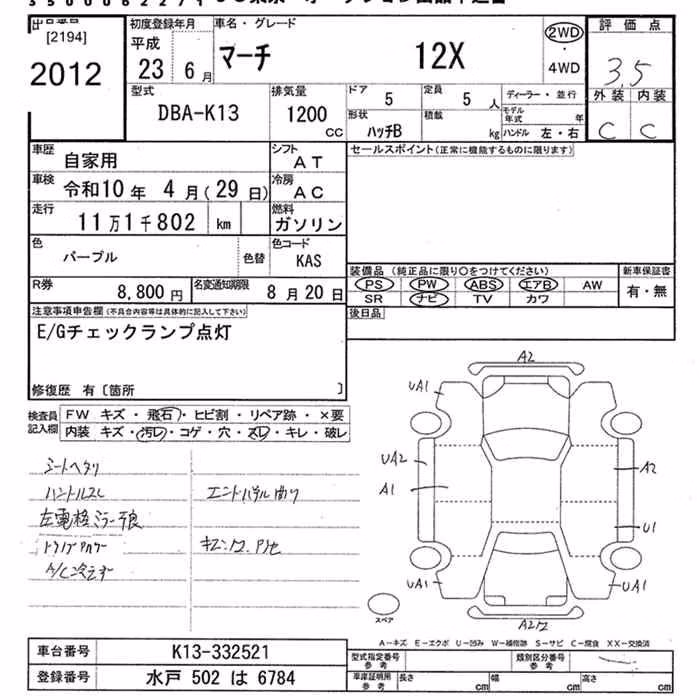 出品番号
[2194]
2012
初度登録年月
平成
23 6月
車名・グレード
マーチ 12X
2WD
・
4WD
評価点
3.5
外装 内装
C C
型式
DBA-K13
排気量
1200
CC
ドア
5
定員
5人
形状
ハッチB
積載
kg
ディーラー・並行
モデル
年式 年
ハンドル 左・右
車歴
自家用
シフト
AT
車検
令和10年 4月(29日)
冷房
AC
走行
11万1千802 km
燃料
ガソリン
色
パープル
色替
色コード
KAS
R券
8,800円
名変通知期限
8月20日
セールスポイント(正常に機能するものに限ります)
装備品 (純正品に限り○をつけてください)
PS PW ABS エアB AW
SR ナビ TV カワ
新車保証書
有・無
後日品
注意事項申告欄(不具合内容等は具体的に記入して下さい)
E/Gチェックランプ点灯
修復歴 有〔箇所 〕
検査員
記入欄
FW キズ・飛石・ヒビ割・リペア跡・×要
内装 キズ・汚レ・コゲ・穴・スレ・キレ・破レ
シートヘタリ
ハンドルスレ
左電格ミラー不良
A/C冷えず
エンドパネル曲り
A2
UA1
UA2
A1
A2
U1
UA1
UA1
スペア
A-キズ E-エクボ U-凹み W-補修跡 S-サビ C-腐食 XX-交換済
車台番号
K13-332521
登録番号
水戸 502 は 6784
型式指定番号
参考
類別区分番号
参考
車庫証明用
参考
長さ cm
幅 cm
高さ cm